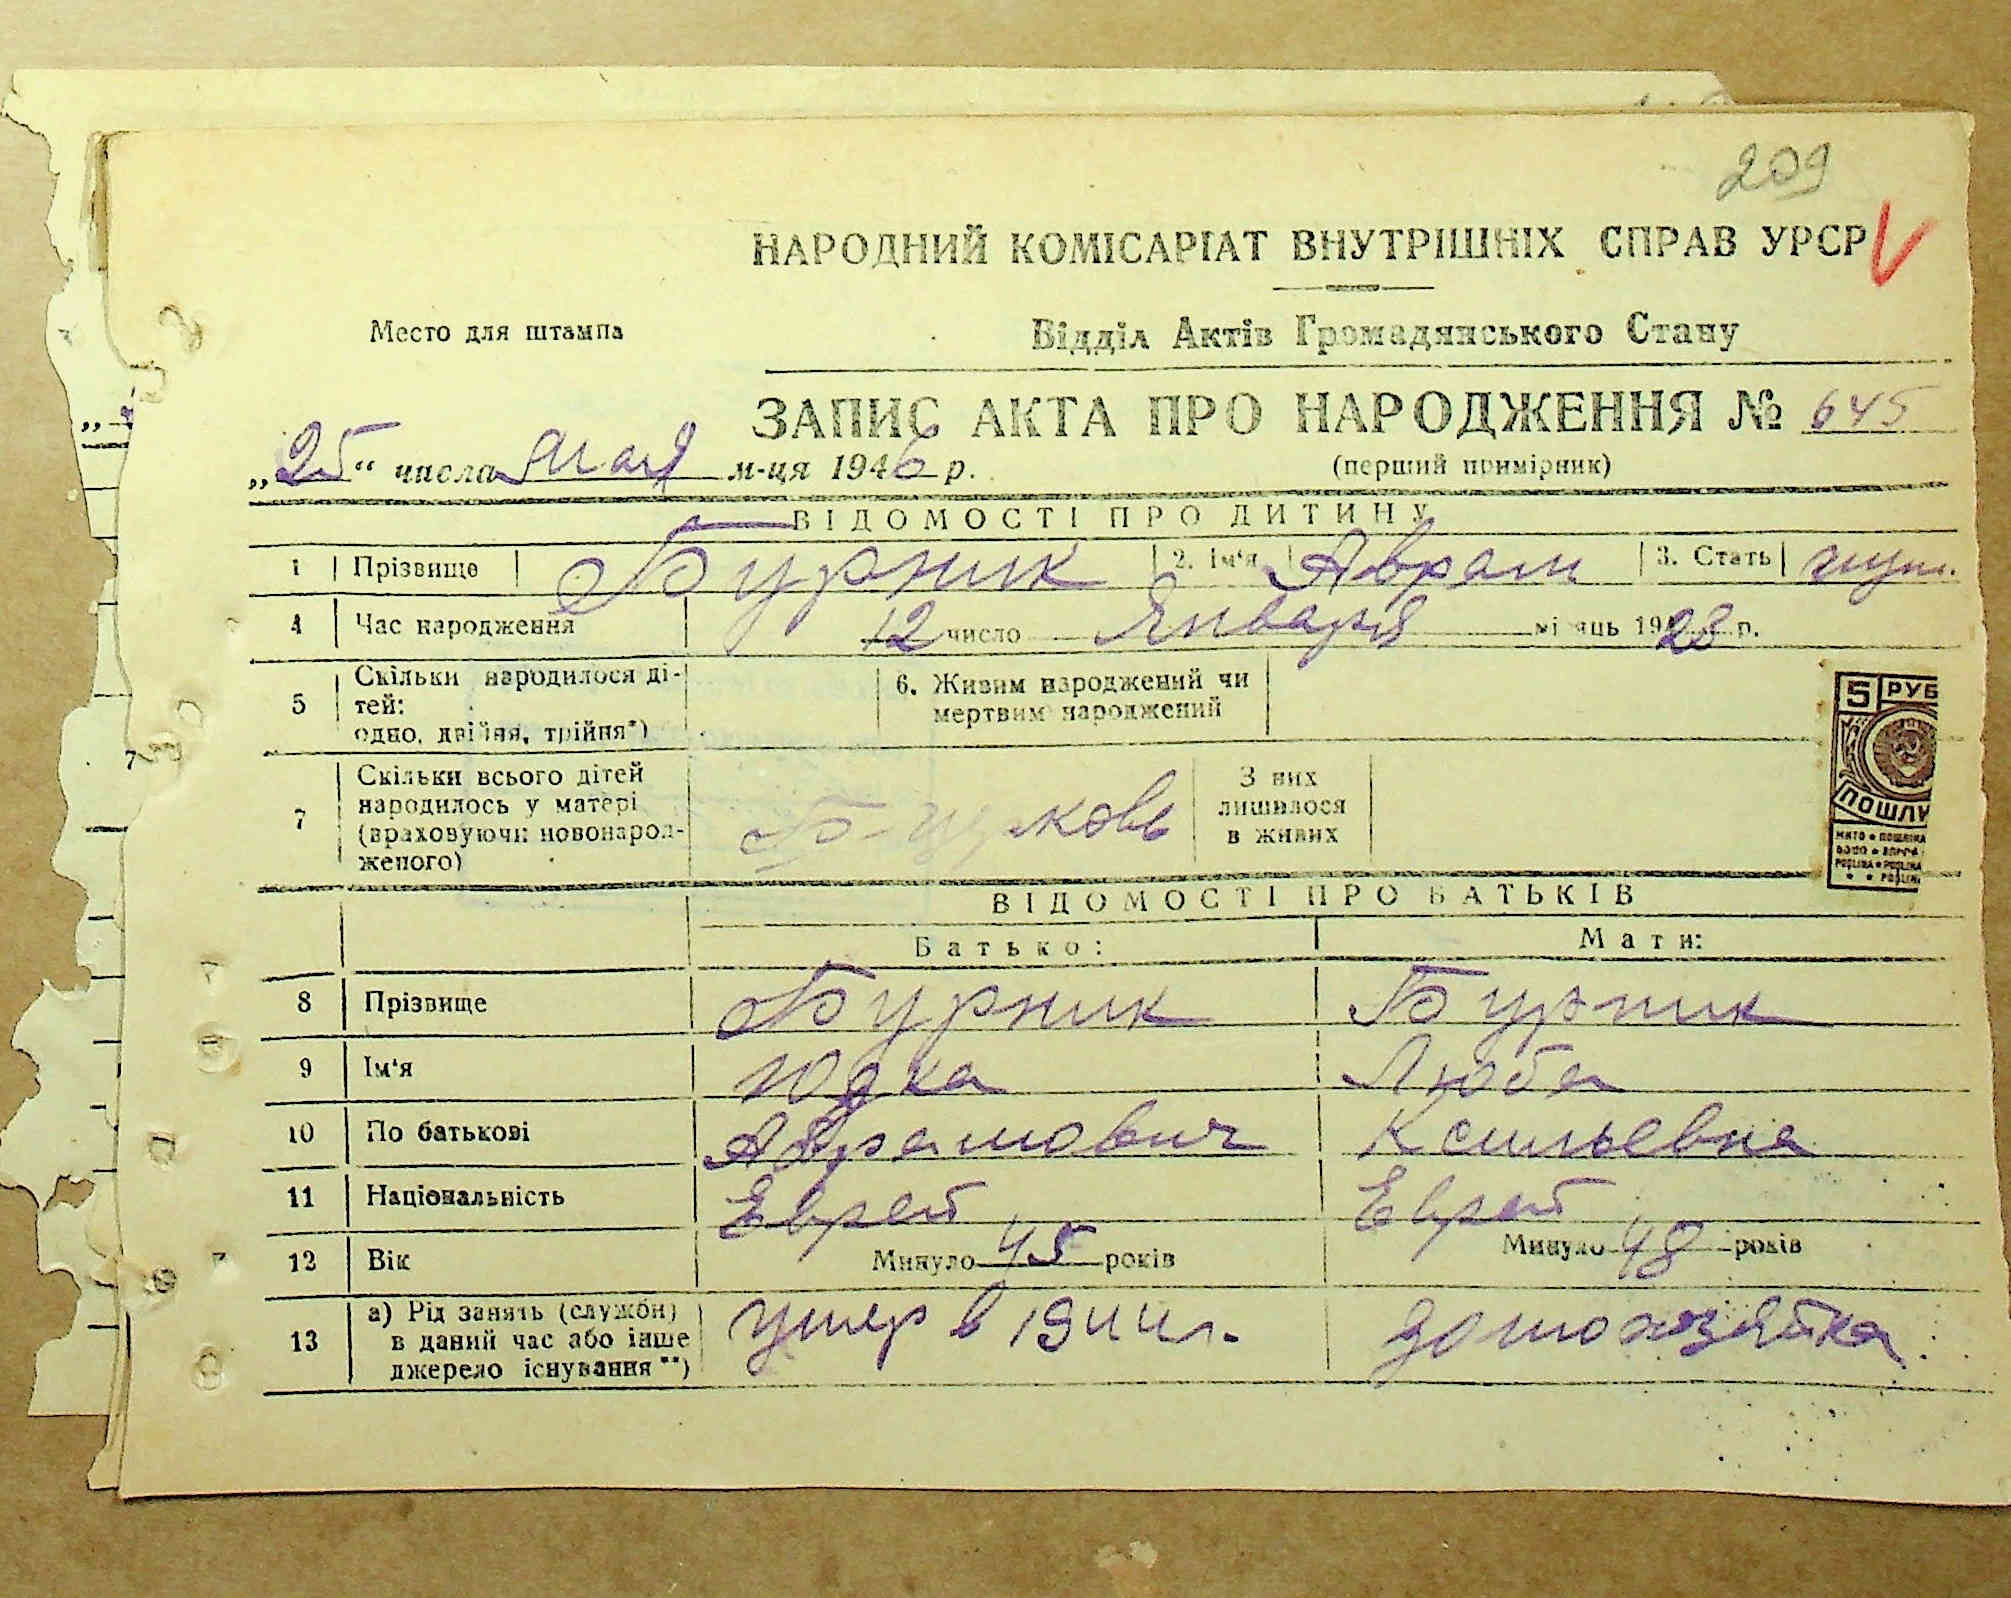 209
НАРОДНИЙ КОМІСАРІАТ ВНУТРІШНІХ СПРАВ УРСР
Место для штампа
Відділ Актів Громадянського Стану
ЗАПИС АКТА ПРО НАРОДЖЕННЯ № 645
„25“ числа мая м-ця 1946 р. (перший примірник)
ВІДОМОСТІ ПРО ДИТИНУ
1 Прізвище Бурник 2. Ім'я Аврам 3. Стать муж.
4 Час народження 12 число Января місяць 1928 р.
5 Скільки народилося ді-
тей:
одно, двійня, трійня*)
6. Живим народжений чи
мертвим народжений
7 Скільки всього дітей
народилось у матері
(враховуючи новонарод-
женого)
З них
лишилося
в живих
5 РУБ
ПОШЛ
ВІДОМОСТІ ПРО БАТЬКІВ
Батько: Мати:
8 Прізвище Бурник Бурник
9 Ім'я Юдка Люба
10 По батькові Абрамович
11 Національність Еврей Еврей
12 Вік Минуло 45 років Минуло 48 років
13 а) Рід занять (служби)
в даний час або інше
джерело існування**)
умер в 1944 г. домохозяйка